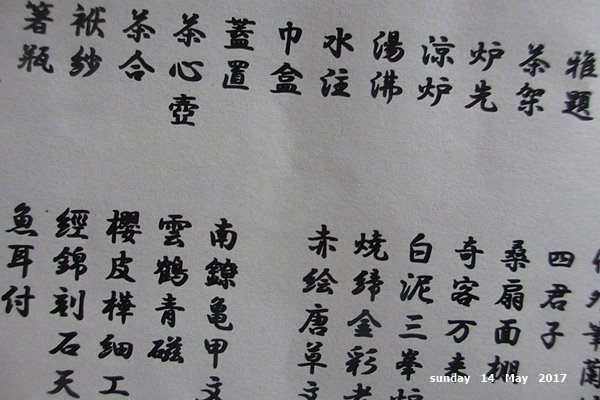 雅題
外筆蘭
四君子
茶架
桑扇面棚
炉先
奇客万来
涼炉
白泥三峯炉
湯沸
焼締金彩煮
水注
赤絵唐草文
巾盒
蓋置
南鐐亀甲文
茶心壺
雲鶴青磁
茶合
櫻皮樺細工
袱紗
經錦刻石天
箸瓶
魚耳付
sunday 14 May 2017